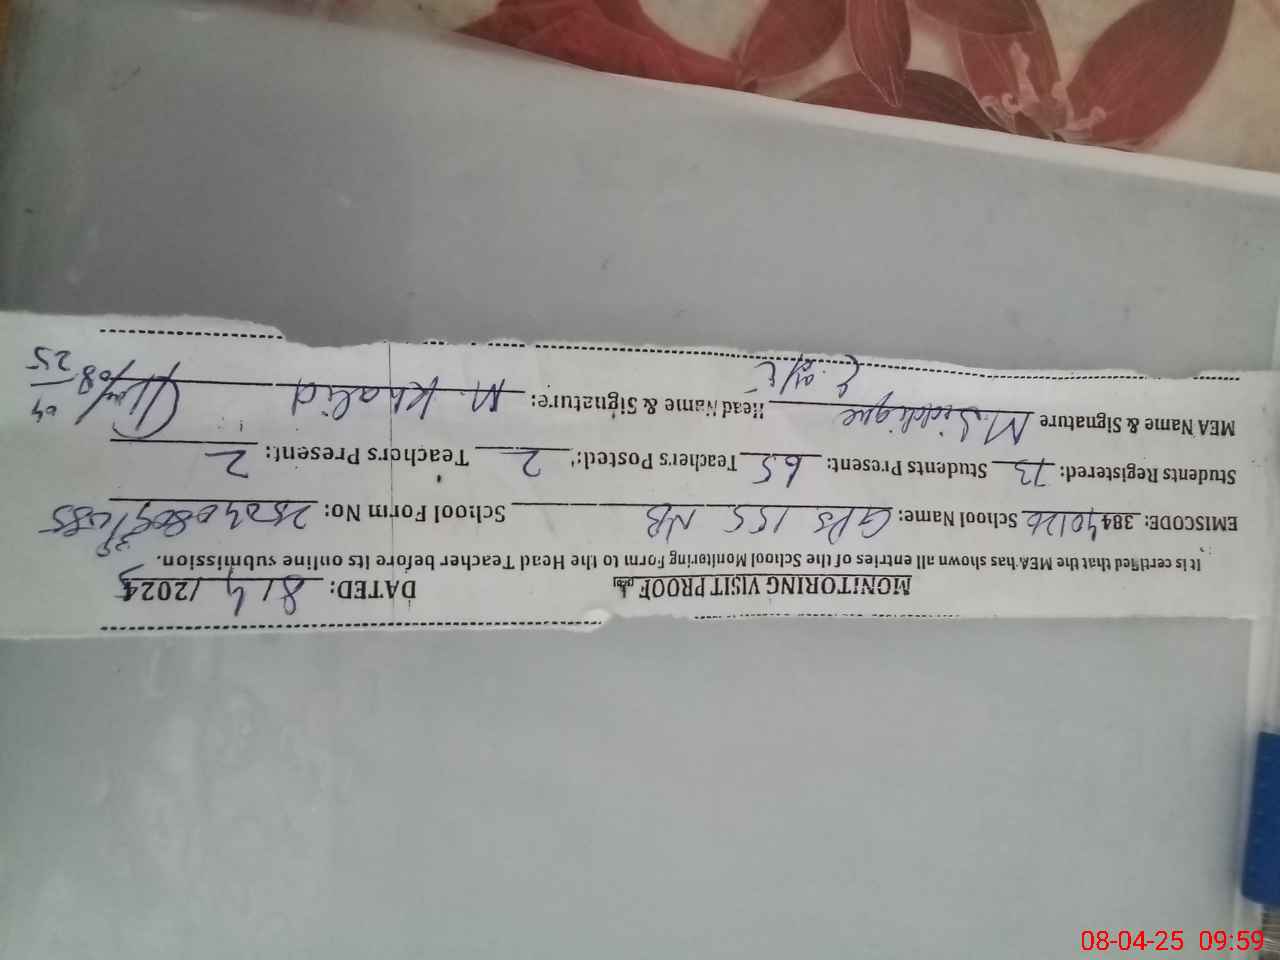 MONITORING VISIT PROOF DATED: 8/4/2025
It is certified that the MEA has shown all entries of the School Monitoring Form to the Head Teacher before its online submission.
EMISCODE: 38440126 School Name: GPS 155 NB School Form No:
Students Registered: 73 Students Present: 65 Teachers Posted: 2 Teachers Present: 2
MEA Name & Signature M. Siddique Head Name & Signature: M. Khalid 08/04/25
08-04-25 09:59